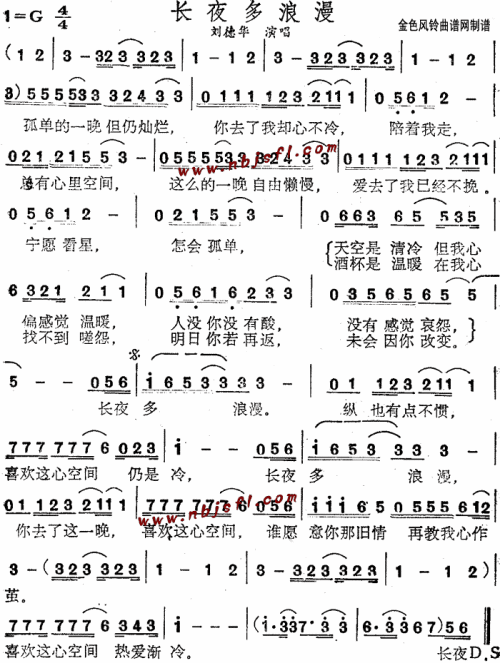 长夜多浪漫
1=G 4/4
刘德华 演唱
金色风铃曲谱网制谱
(1 2 | 3 - 323 323 | 1 - 1 2 | 3 - 323 323 | 1 - 1 2 |
3) 555533 32433 | 0111 123211 | 0561 2 |
孤单的一晚但仍灿烂, 你去了我却心不冷, 陪着我走,
021 21553 - | 05555533 32433 | 01111 12321 |
总有心里空间, 这么的一晚自由懒慢, 爱去了我已经不挽。
www.nbjsfl.com
0561 2 - | 021553 - | 0663 65 535 |
宁愿看星, 怎会孤单, 天空是 清冷 但我心
酒杯是 温暖 在我心
6321 211 | 0561 6233 | 0356565 5 |
偏感觉 温暖, 人没你没有酸, 没有感觉哀怨,
找不到 嗟怨, 明日你若再返, 未会因你改变。
5 - - 056 | i653333 - | 01 123211 |
长夜 多 浪漫。 纵 也有点不惯,
777 7776 023 | i - - 056 | i653 33 - |
喜欢这心空间 仍是 冷, 长夜 多 浪漫,
01 123 2111 | 777 7776 056 | iii i65 0555612 |
你去了这一晚, 喜欢这心空间, 谁愿 意你那旧情 再教我心作
www.nbjsfl.com
3 - (323 323 | 1 - 1 2 | 3 - 323 323 | 1 - 1 2) |
茧。
777 7776 323 | i - - - | (i·337·33 | 6·3367)56 ‖
喜欢这心空间 热爱渐 冷。 长夜D.S